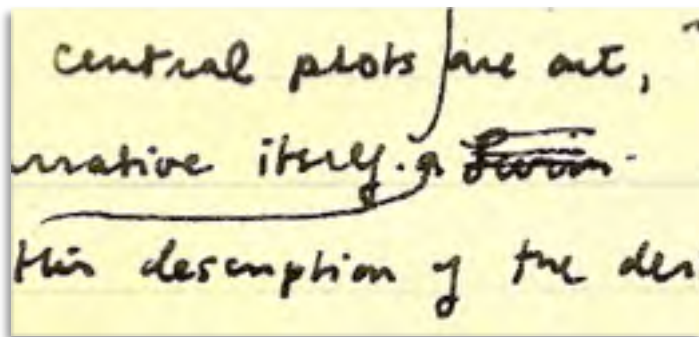 central plots are out,
rrative itself.
this description of the des